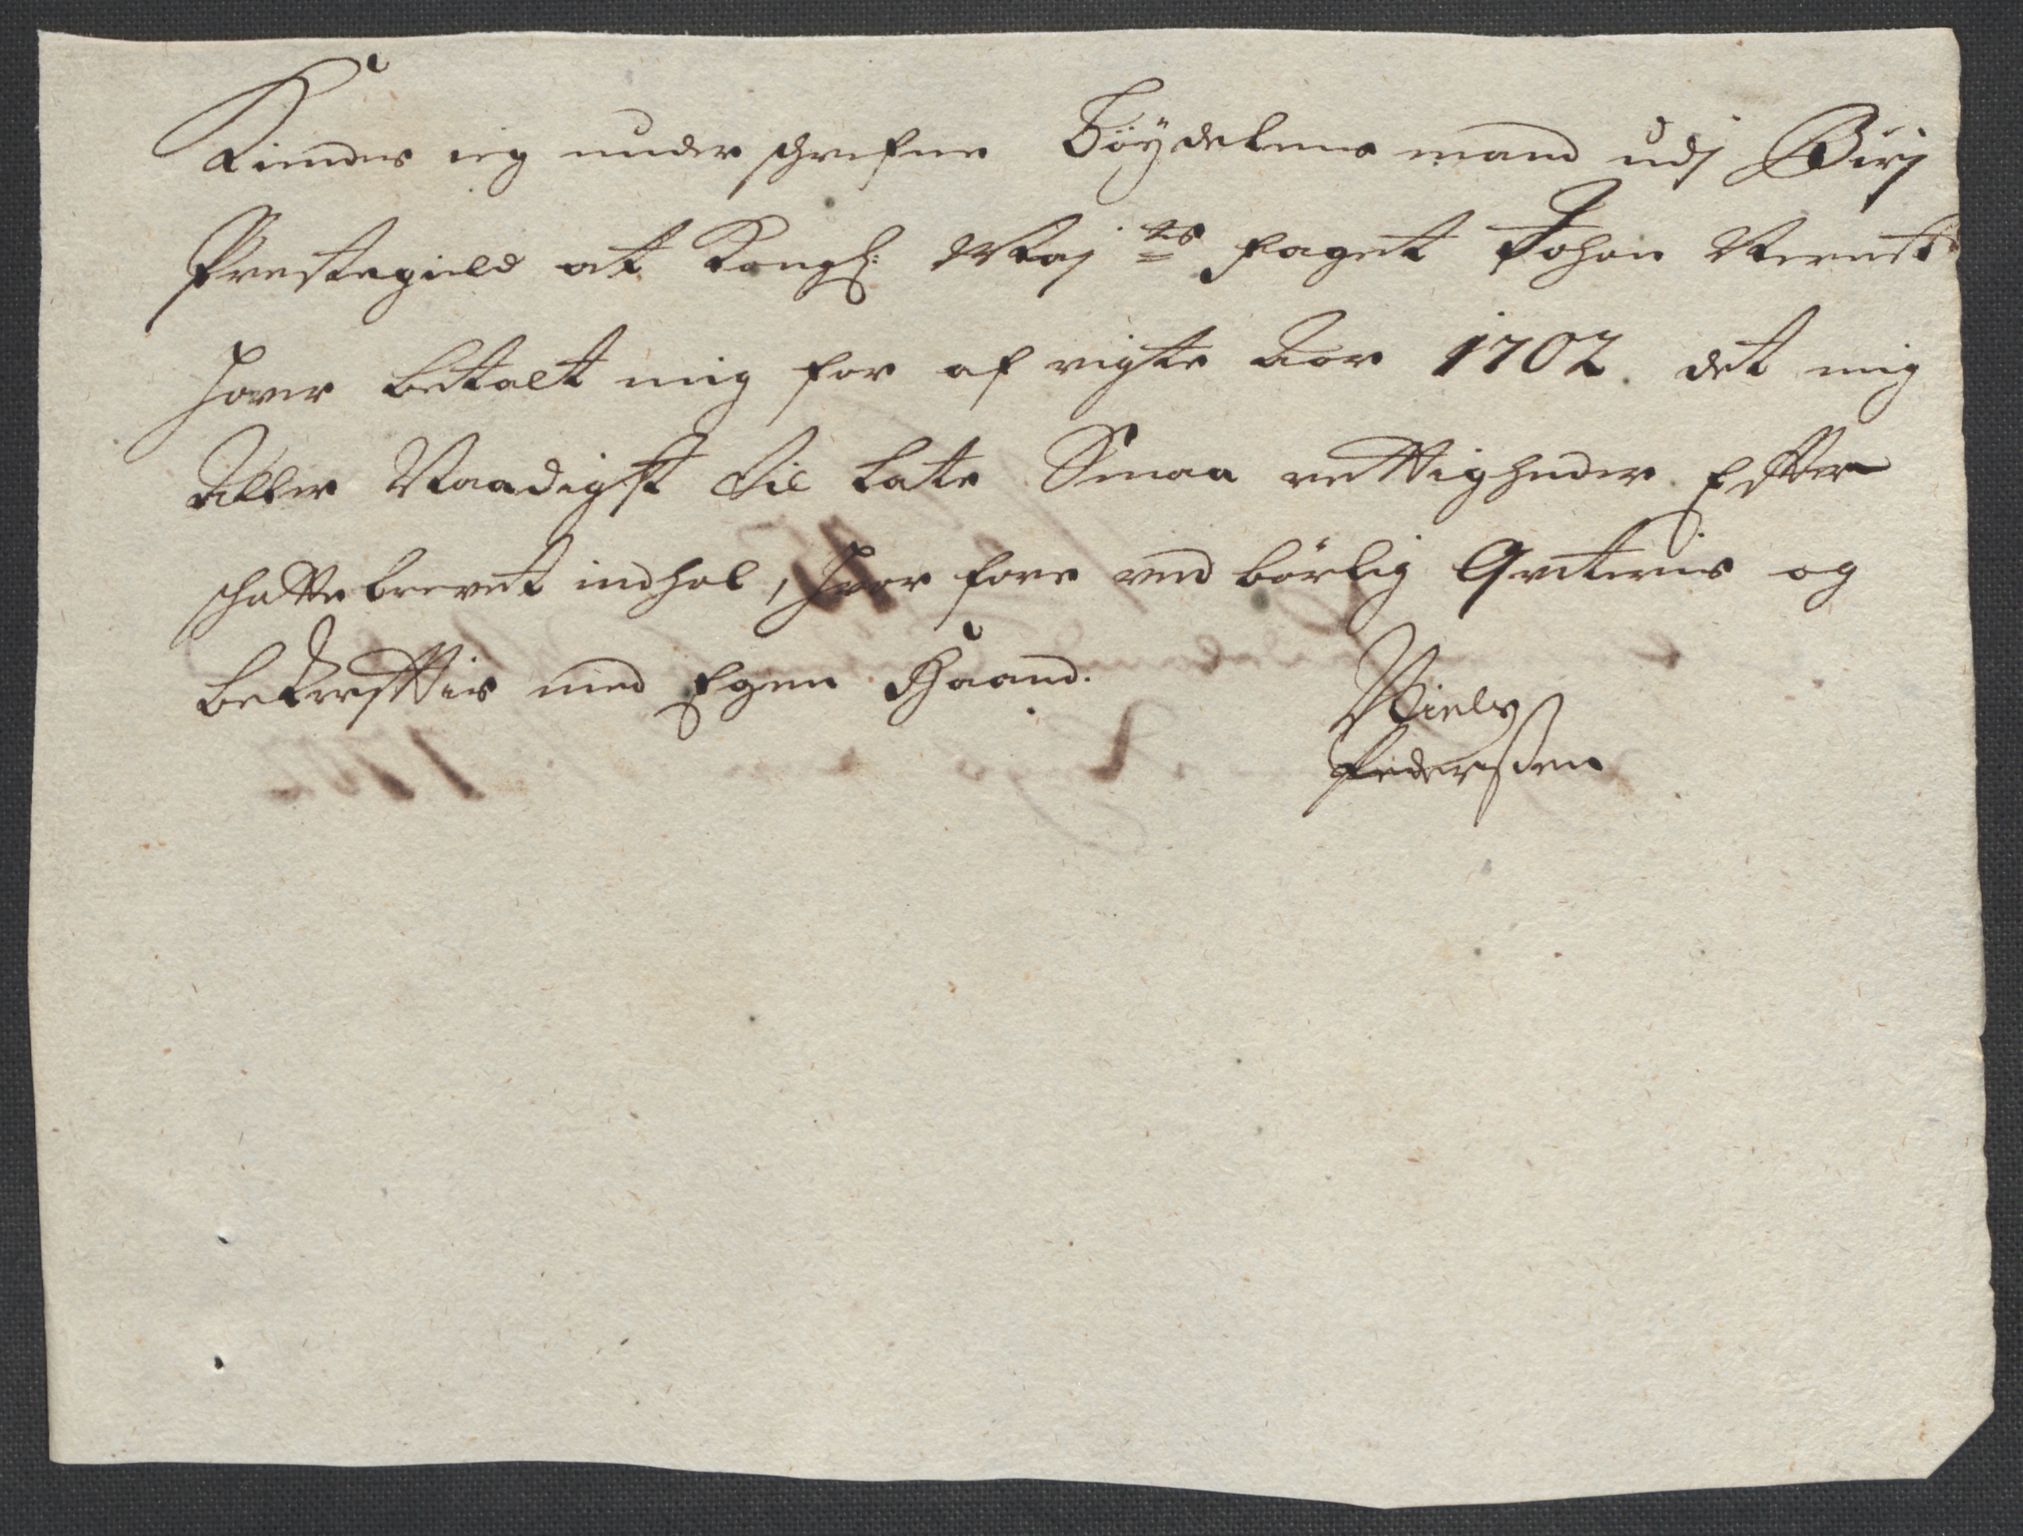 Kiender ieg under schrefne Böÿdelens mand udj Birj
Prestegield at Kongl: Maj tz faaget Johan Nernst
hover betalt mig for af vigte Aar 1702. det mig
Aller Naadigst Til late Smaa rettigheder Efter
schatte brevet indhol, hvor fore ved börlig Qviteris og
bekrefttis med Egen Haand.
Niels
Pedersen